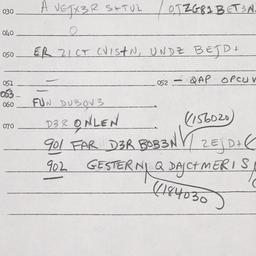 030 A VEJX3R S+TVL / OJZG81BET3N
040
050 ER 21CT CVIS+N, UNDZ BEJD+
051 = 052 — QAP OPCUV
053
060 FUN DUBQV3
070 D3R QNLEN (/156020)
901 FAR D3R BOB3N / 2EJD+(
902 GESTERN, Q DAJCTMERIS
(/184030)